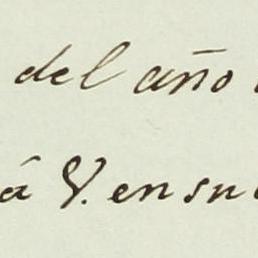 del año
á V. en su